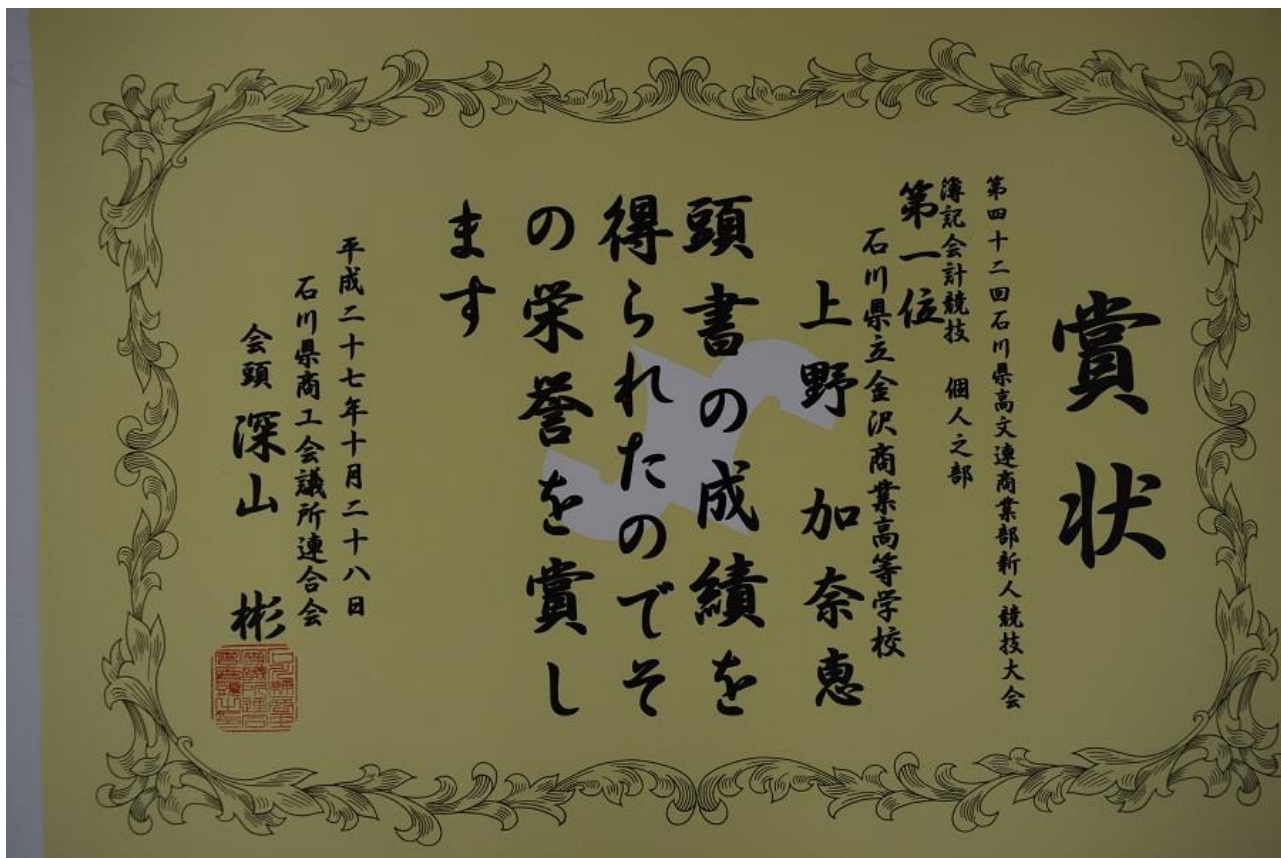 賞状
第四十二回石川県高文連商業部新人競技大会
簿記会計競技 個人之部
第一位
石川県立金沢商業高等学校
上野 加奈恵
頭書の成績を
得られたのでそ
の栄誉を賞し
ます
平成二十七年十月二十八日
石川県商工会議所連合会
会頭 深山 彬